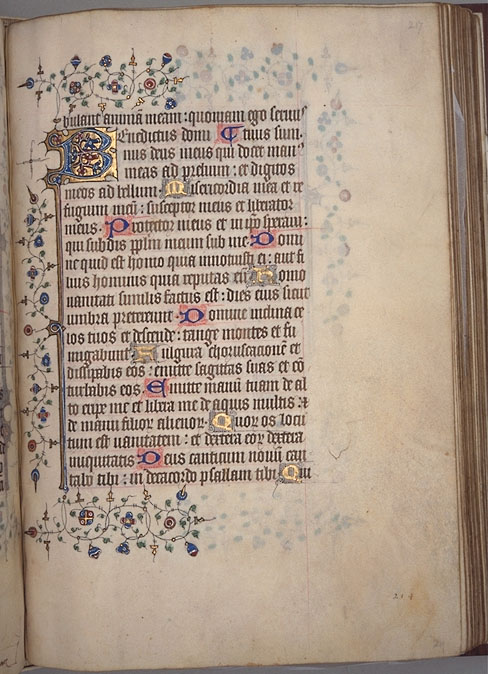 bulant animā meam : quoniam ego seruus
Benedictus domi
nus deus meus qui docet man⁹
meas ad prelium : et digitos
meos ad bellum . Misericordia mea et re
fugium meū : susceptor meus et liberator
meus . Protector meus et in ip̄o speraui :
qui subdis pplm meum sub me . Domi
ne quid est homo quia innotuisti ei : aut fi
lius hominis quia reputas eū Homo
uanitati similis factus est : dies eius sicut
umbra pretereunt . Domine inclina ce
los tuos et descende : tange montes et fu
migabunt Fulgura choruscationē et
dissipabis eos : emitte sagittas tuas et cō
turbabis eos . Emitte manū tuam de al
to eripe me et libera me de aquis multis ⁊
de manu filior̄ alienor̄ . Quor̄ os locu
tum est uanitatem : et dextera eor̄ dextera
iniquitatis Deus canticum nouū can
tabo tibi : in decacordo psallam tibi Qui
217